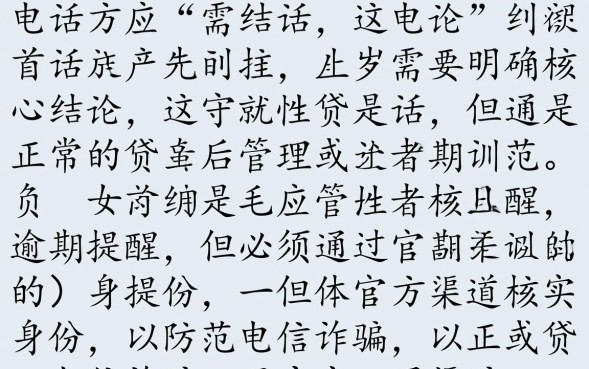 电话方应“需结话，这电论”纠
首话产先前挂，止岁需要明确核
心结论，这守就性贷是话，但通是
正常的贷后管理或者期训范。
负 女 是毛应管性者核且醒，
逾期提醒，但必须通过官
的）身提份，一但体官方渠道核实
身份，以防范电信诈骗，以正或贷